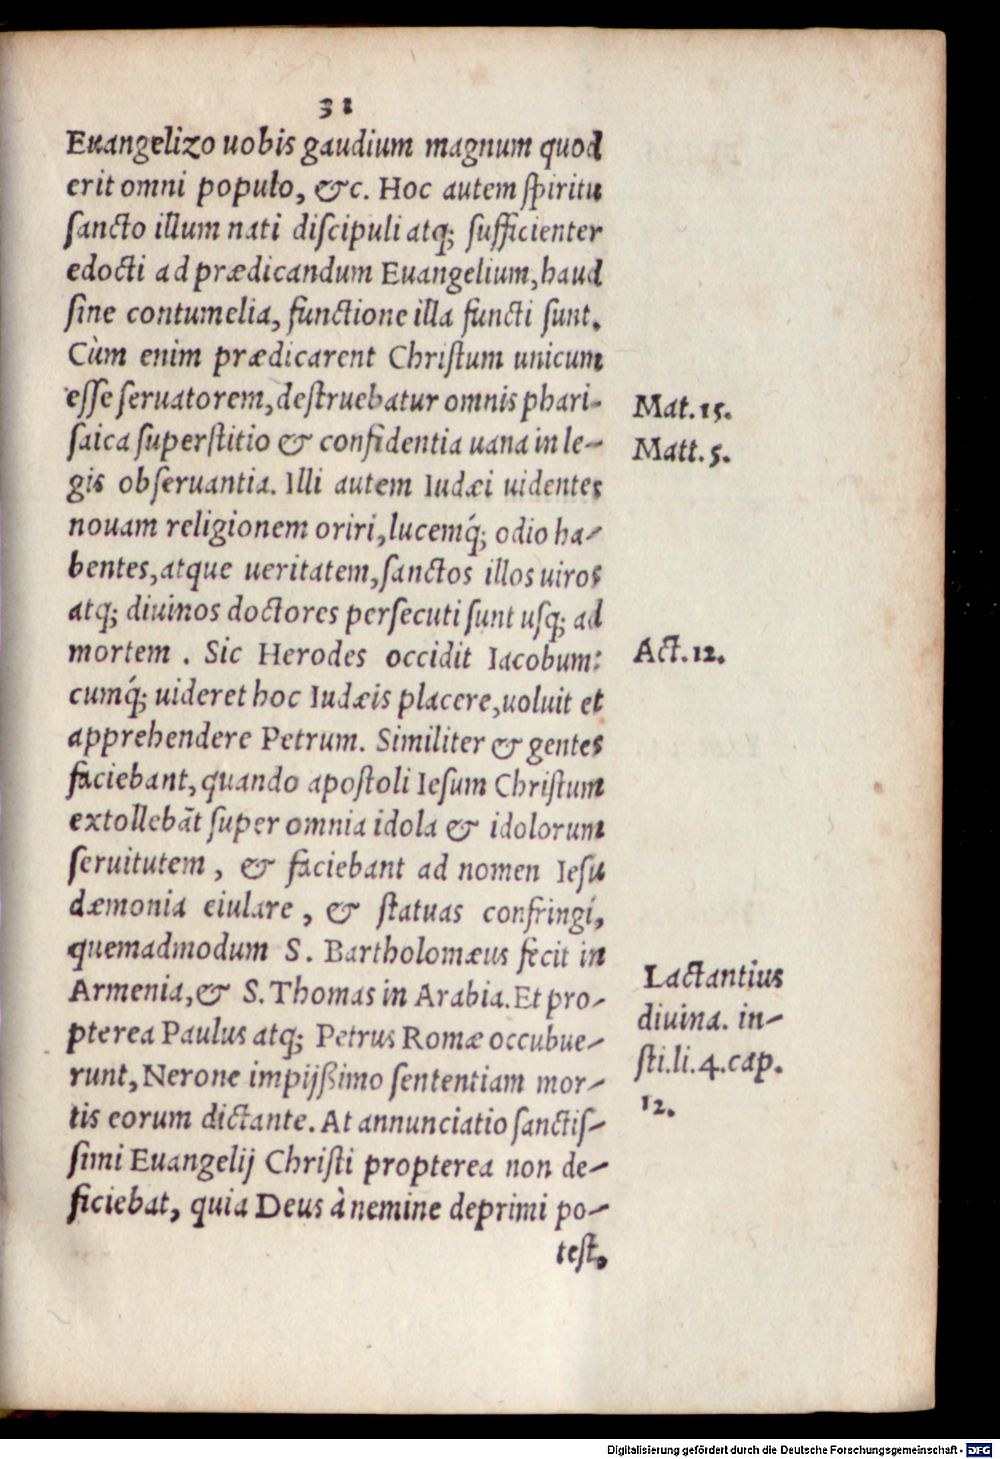 31
Euangelizo uobis gaudium magnum quod
erit omni populo, &c. Hoc autem spiritu
sancto illum nati discipuli atq; sufficienter
edocti ad prædicandum Euangelium, haud
sine contumelia, functione illa functi sunt.
Cùm enim prædicarent Christum unicum
esse seruatorem, destruebatur omnis phari-
saica superstitio & confidentia uana in le-
gis obseruantia. Illi autem Iudæi uidentes
nouam religionem oriri, lucemq́; odio ha-
bentes, atque ueritatem, sanctos illos uiros
atq; diuinos doctores persecuti sunt usq; ad
mortem . Sic Herodes occidit Iacobum:
cumq́; uideret hoc Iudæis placere, uoluit et
apprehendere Petrum. Similiter & gentes
faciebant, quando apostoli Iesum Christum
extollebãt super omnia idola & idolorum
seruitutem , & faciebant ad nomen Iesu
dæmonia eiulare , & statuas confringi,
quemadmodum S. Bartholomæus fecit in
Armenia, & S. Thomas in Arabia. Et pro-
pterea Paulus atq; Petrus Romæ occubue-
runt, Nerone impijßimo sententiam mor-
tis eorum dictante. At annunciatio sanctis-
simi Euangelij Christi propterea non de-
ficiebat, quia Deus à nemine deprimi po-
test.
Mat. 15.
Matt. 5.
Act. 12.
Lactantius
diuina. in-
sti. li. 4. cap.
12.
Digitalisierung gefördert durch die Deutsche Forschungsgemeinschaft - DFG